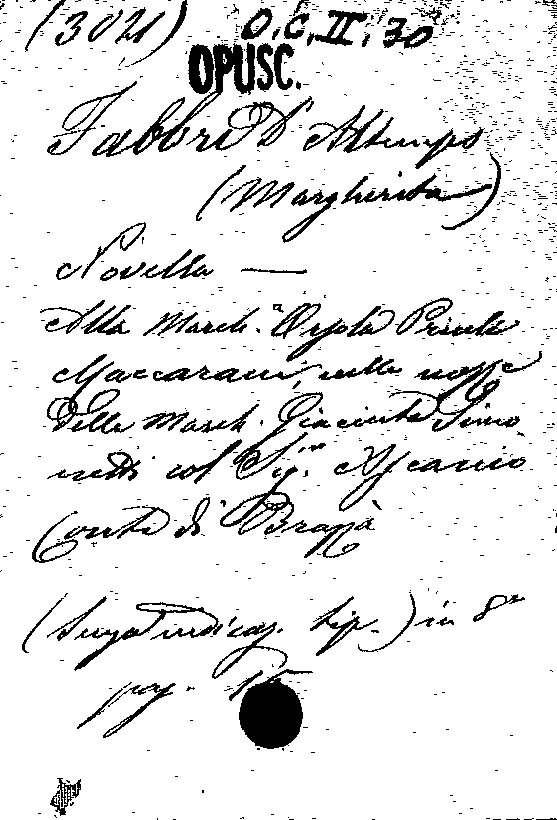 (3021) O.C. II. 30
OPUSC.
Fabbri D'Altemps
(Margherita)
Novella —
Alla March.ª Orsola Priuli
Maccarani, nelle nozze
della March. Giacinta Simo
netti col Sig.r Ascanio
Conte di Brazzà
(Senza indicaz. tip.) in 8°
pag.